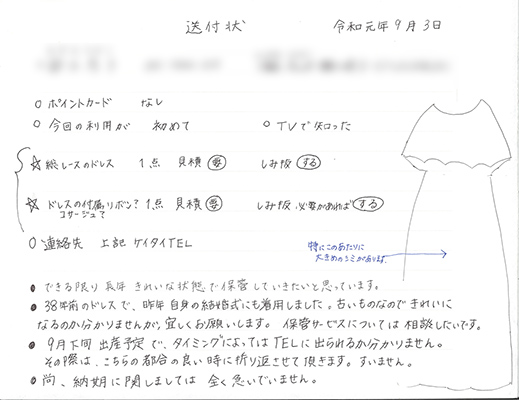 送付状 令和元年9月3日
○ ポイントカード なし
○ 今回の利用が 初めて ○ TVで知った
☆ 総レースのドレス 1点 見積 要 しみ抜 する
☆ ドレスの付属、リボン? 1点 見積 要 しみ抜 必要があれば する
コサージュ?
○ 連絡先 上記 ケイタイTEL
特にこのあたりに
大きめのシミがあります。
● できる限り 長年 きれいな状態で保管していきたいと思っています。
● 38年前のドレスで、昨年 自身の結婚式にも着用しました。古いものなので きれいに
なるのか分かりませんが、宜しくお願いします。 保管サービスについては 相談したいです。
● 9月下旬 出産予定で、タイミングによってはTELに出られるか分かりません。
その際は、こちらの都合の良い時に折り返させて頂きます。すいません。
● 尚、納期に関しましては 全く急いでいません。